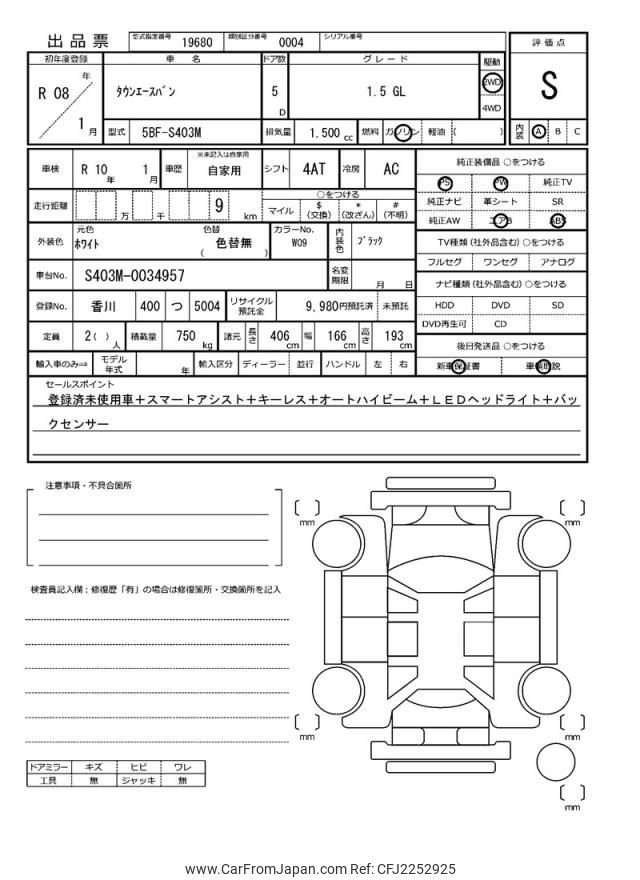 出品票 型式指定番号 19680 類別区分番号 0004 シリアル番号
評価点
S
初年度登録 車名 ドア数 グレード 駆動
R 08 年 1 月 タウンエースバン 5 D 1.5 GL 2WD 4WD
型式 5BF-S403M 排気量 1,500 cc 燃料 ガソリン 軽油 ( )
内装 A B C
車検 R 10 年 1 月 車歴 ※未記入は自家用 自家用 シフト 4AT 冷房 AC
純正装備品 ○をつける
PS PW 純正TV
純正ナビ 革シート SR
純正AW エアB ABS
走行距離 万 千 9 km ○をつける
マイル $(交換) *(改ざん) #(不明)
外装色 元色 ホワイト 色替 ( 色替無 ) カラーNo. W09 内装色 ブラック
TV種類(社外品含む)○をつける
フルセグ ワンセグ アナログ
車台No. S403M-0034957 名変期限 月 日
ナビ種類(社外品含む)○をつける
HDD DVD SD
DVD再生可 CD
登録No. 香川 400 つ 5004 リサイクル預託金 9,980円預託済 未預託
定員 2( )人 積載量 750 kg 諸元 長さ 406 cm 幅 166 cm 高さ 193 cm
後日発送品 ○をつける
新車保証書 車輌取説
輸入車のみ⇒ モデル年式 年 輸入区分 ディーラー 並行 ハンドル 左 右
セールスポイント
登録済未使用車+スマートアシスト+キーレス+オートハイビーム+LEDヘッドライト+バッ
クセンサー
注意事項・不具合箇所
検査員記入欄:修復歴「有」の場合は修復箇所・交換箇所を記入
mm
mm
mm
mm
mm
ドアミラー キズ ヒビ ワレ
工具 無 ジャッキ 無
www.CarFromJapan.com Ref: CFJ2252925